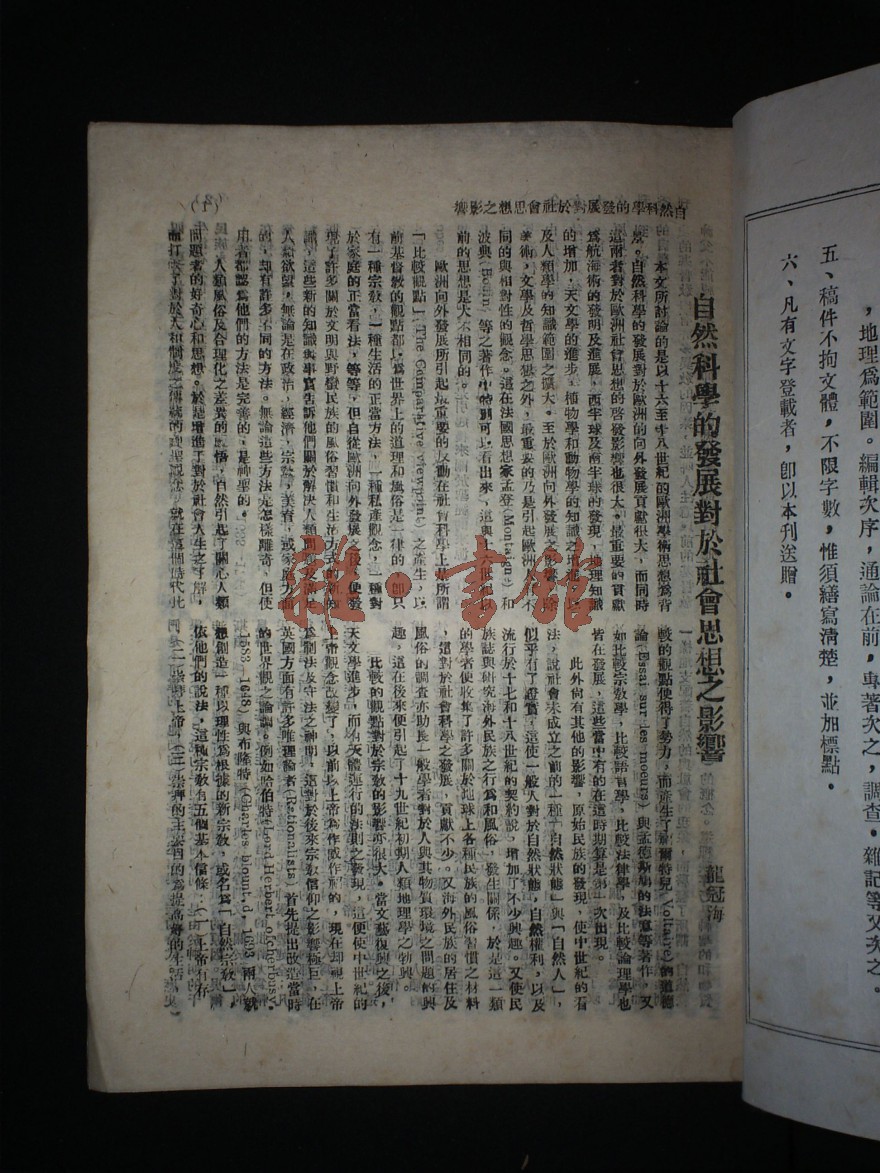 ，地理爲範圍。編輯次序，通論在前，專著次之，調查・雜記等又次之。
五、稿件不拘文體，不限字數，惟須繕寫清楚，並加標點。
六、凡有文字登載者，卽以本刊送贈。
自然科學的發展對於社會思想之影響
(1)
自然科學的發展對於社會思想之影響
龍冠海
本文所討論的是以十六至十八世紀的歐洲學術思想爲背
景。自然科學的發展對於歐洲的向外發展貢獻很大，而同時
這兩者對於歐洲社會思想的啓發影響也很大。最重要的貢獻
爲航海術的發明及進展，西半球及南半球的發現，地理知識
的增加，天文學的進步，植物學和動物學的知識之增進，以
及人類學的知識範圍之擴大。至於歐洲向外發展之影響，除
美術，文學及哲學思想之外，最重要的乃是引起歐洲人對不
同的與相對性的觀念。這在法國思想家孟登(Montaigne)和
波與(Bodin)等之著作中特別可以看出來，這與十六世紀以
前的思想是大不相同的。
歐洲向外發展所引起最重要的反動在社會科學上是所謂
「比較觀點」(The Comparative viewpoint)之產生，以
前基督敎的觀點都以爲世界上的道理和風俗是一律的，卽只
有一種宗敎，一種生活的正當方法，一種私產觀念，一種對
於家庭的正當看法，等等，但自從歐洲向外發展之後，便發
現了許多關於文明與野蠻民族的風俗習慣和生活方式的新知
識，這些新的知識與事實告訴他們關於解決人類問題及滿足
人類欲望，無論是在政治，經濟，宗敎，美育，或家庭方面
的，却有許多不同的方法。無論這些方法是怎樣離奇，但使
用者都認爲他們的方法是完善的，是神聖的。
人類風俗及合理化之差異的覺悟，自然引起了關心人類
問題者的好奇心和思想。於是增進了對於社會人生之了解，
較的觀點使得了勢力，而產生了
論(Essai sur les moeurs)與孟德斯鳩的法意等著作。又
如比較宗敎學，比較語言學，比較法律學，及比較論理學也
皆在發展，這些當中有的在這時期算是第一次出現。
此外尚有其他的影響，原始民族的發現，使中世紀的看
法，說社會未成立之前的一種「自然狀態」與「自然人」，
似乎有了證實，這使一般人對於自然狀態，自然權利，以及
流行於十七和十八世紀的契約說，增加了不少興趣。又使民
族誌與研究海外民族之行爲和風俗，發生關係，於是這一類
的學者便收集了許多關於地球上各種民族的風俗習慣之材料
，這對於社會科學之發展，貢獻不少。又海外民族的居住及
風俗的調查亦助長一般學者對於人與其物質環境之問題的興
趣，這在後來便引起了十九世紀初期人類地理學之勃興。
比較的觀點對於宗敎的影響亦很大。當文藝復興之後，
天文學進步，而有天體運行的法則之發現，這便使中世紀的
上帝觀念改變了，以前以上帝爲作威作福的，現在却視上帝
爲制法及守法之神明，這對於後來宗敎信仰之影響極巨，在
英國方面有許多唯理論者(Rationalists)首先提出改造當時
的世界觀之論調。例如哈伯特(Lord Herbert of cherbusy,
1583-1648)與布隆特(Charles blount d, 1693)兩人就
想創造一種以理性爲根據的新宗敎，或名爲「自然宗敎」，
依他們的說法，這種宗敎有五個基本信條：(一)上帝有存